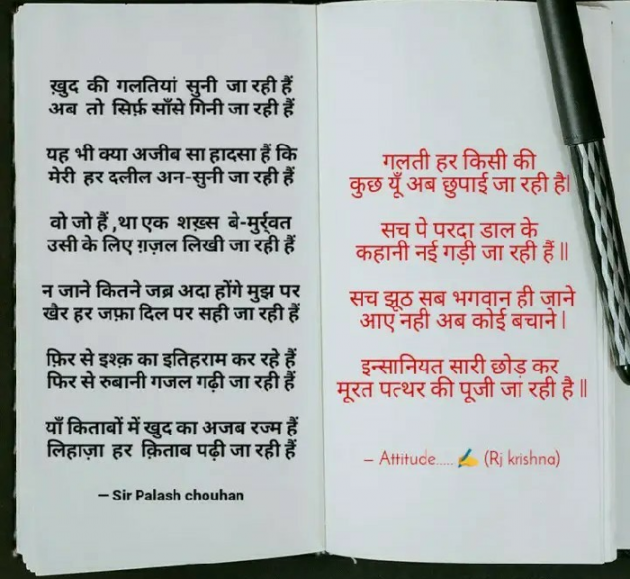 ख़ुद की गलतियां सुनी जा रही हैं
अब तो सिर्फ़ साँसे गिनी जा रही हैं
यह भी क्या अजीब सा हादसा हैं कि
मेरी हर दलील अन-सुनी जा रही हैं
वो जो हैं ,था एक शख़्स बे-मुर्रवत
उसी के लिए ग़ज़ल लिखी जा रही हैं
न जाने कितने जब्र अदा होंगे मुझ पर
खैर हर जफ़ा दिल पर सही जा रही हैं
फ़िर से इश्क़ का इतिहराम कर रहे हैं
फिर से रुबानी गजल गढ़ी जा रही हैं
याँ किताबों में खुद का अजब रज्म हैं
लिहाज़ा हर क़िताब पढ़ी जा रही हैं
— Sir Palash chouhan
गलती हर किसी की
कुछ यूँ अब छुपाई जा रही है।
सच पे परदा डाल के
कहानी नई गड़ी जा रही हैं ||
सच झूठ सब भगवान ही जाने
आए नही अब कोई बचाने |
इन्सानियत सारी छोड़ कर
मूरत पत्थर की पूजी जा रही है ||
— Attitude..... ✍️ (Rj krishna)